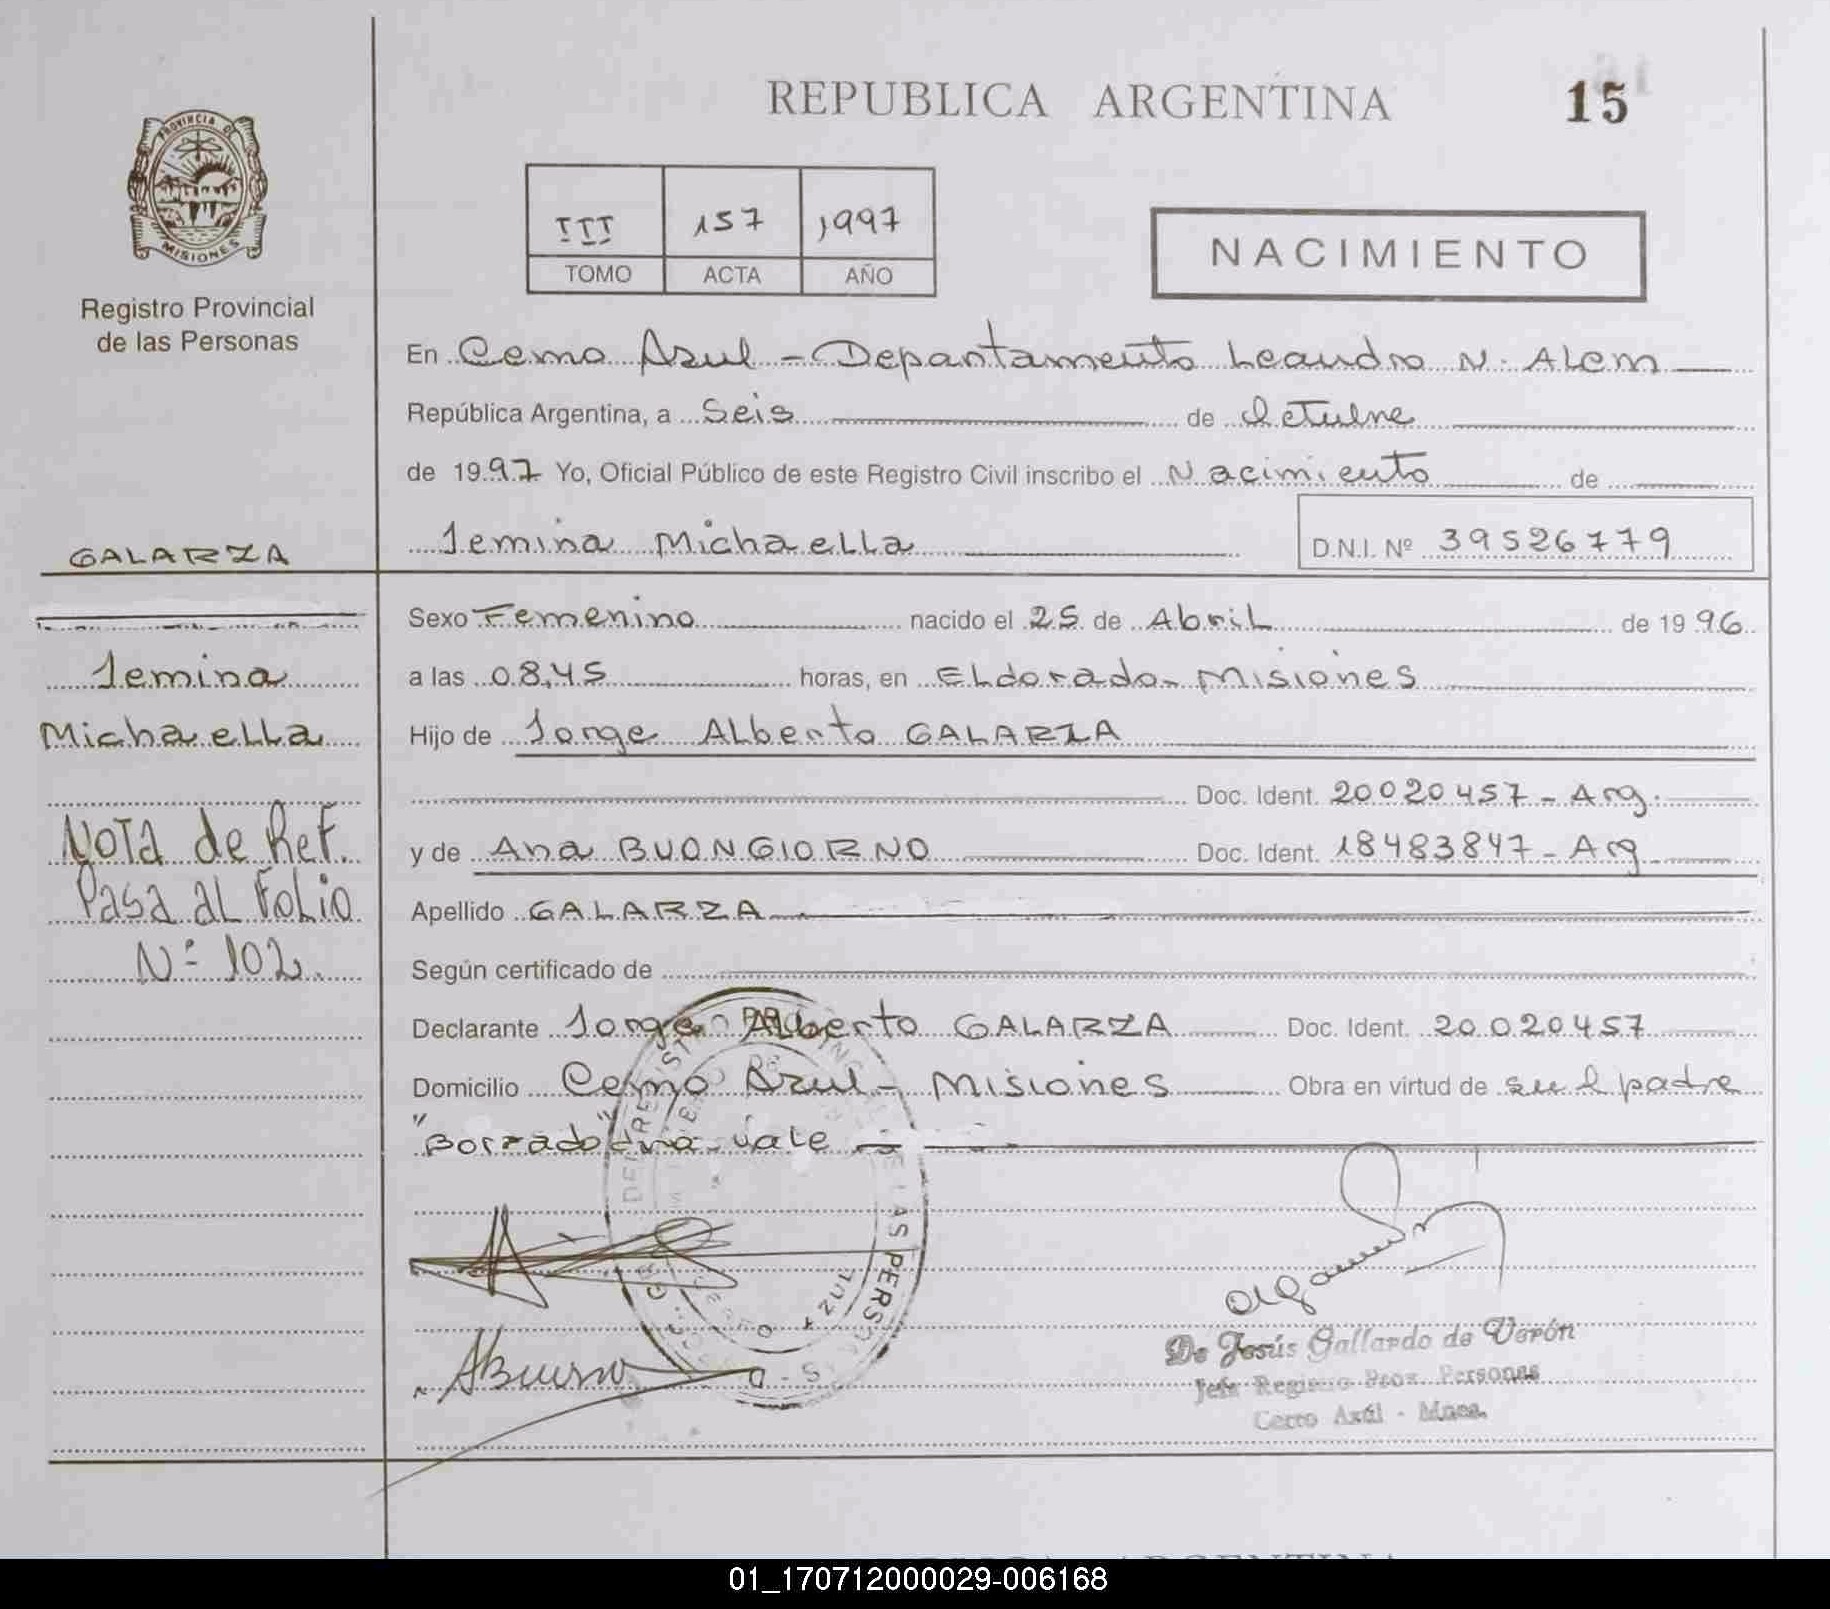 REPUBLICA ARGENTINA
15
PROVINCIA DE
MISIONES
Registro Provincial
de las Personas
III 157 1997
TOMO ACTA AÑO
NACIMIENTO
En Cerro Azul - Departamento Leandro N. Alem
República Argentina, a Seis de Octubre
de 1997 Yo, Oficial Público de este Registro Civil inscribo el Nacimiento de
Jemina Michaella
D.N.I. Nº 39526779
GALARZA
Jemina
Michaella
Nota de Ref.
Pasa al Folio
Nº 102.
Sexo Femenino nacido el 25 de Abril de 1996
a las 08,45 horas, en Eldorado - Misiones
Hijo de Jorge Alberto GALARZA
Doc. Ident. 20020457 - Arg.
y de Ana BUONGIORNO Doc. Ident. 18483847 - Arg
Apellido GALARZA
Según certificado de
Declarante Jorge Alberto GALARZA Doc. Ident. 20.020.457
Domicilio Cerro Azul - Misiones Obra en virtud de ser el padre
"Borrado" vale
De Jesús Gallardo de Verón
Jefa Registro Prov. Personas
Cerro Azúl - Mnes.
01_170712000029-006168